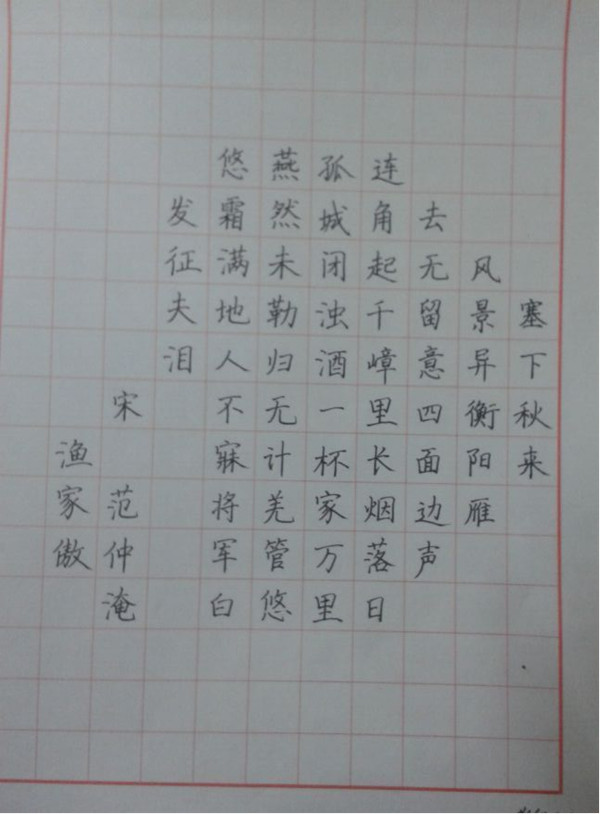 塞下秋来
风景异衡阳雁
去无留意四面边声
连角起千嶂里长烟落日
孤城闭浊酒一杯家万里
燕然未勒归无计羌管悠
悠霜满地人不寐将军白
发征夫泪
宋 范仲淹
渔家傲